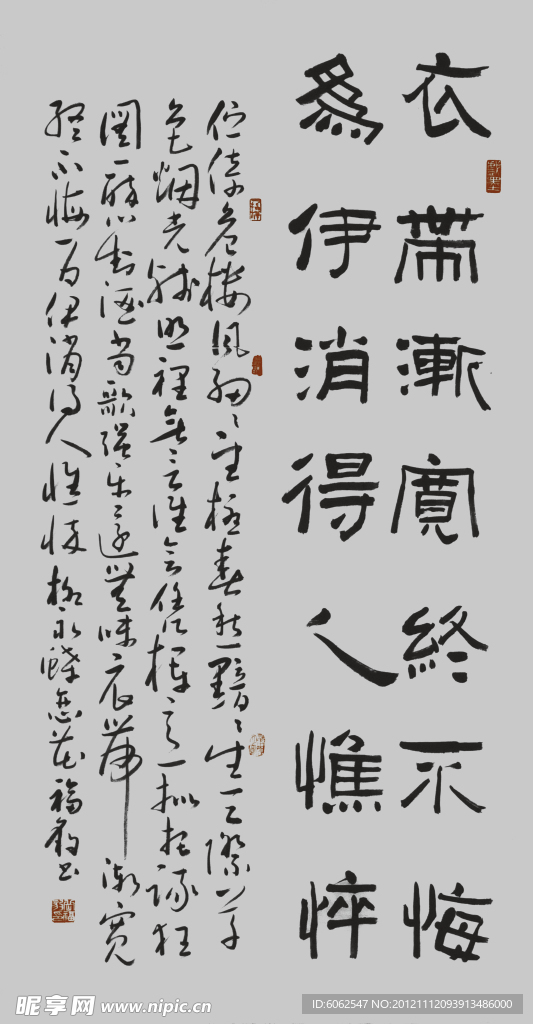 衣帶漸寬終不悔
為伊消得人憔悴
伫倚危樓風細細望極春愁黯黯生天際草
色烟光殘照裡無言誰会凭欄意擬把疎狂
圖一醉對酒當歌強乐還無味衣帶漸寬
終不悔为伊消得人憔悴柳永蝶恋花福书
昵享网 www.nipic.cn
ID:6062547 NO:20121112093913486000